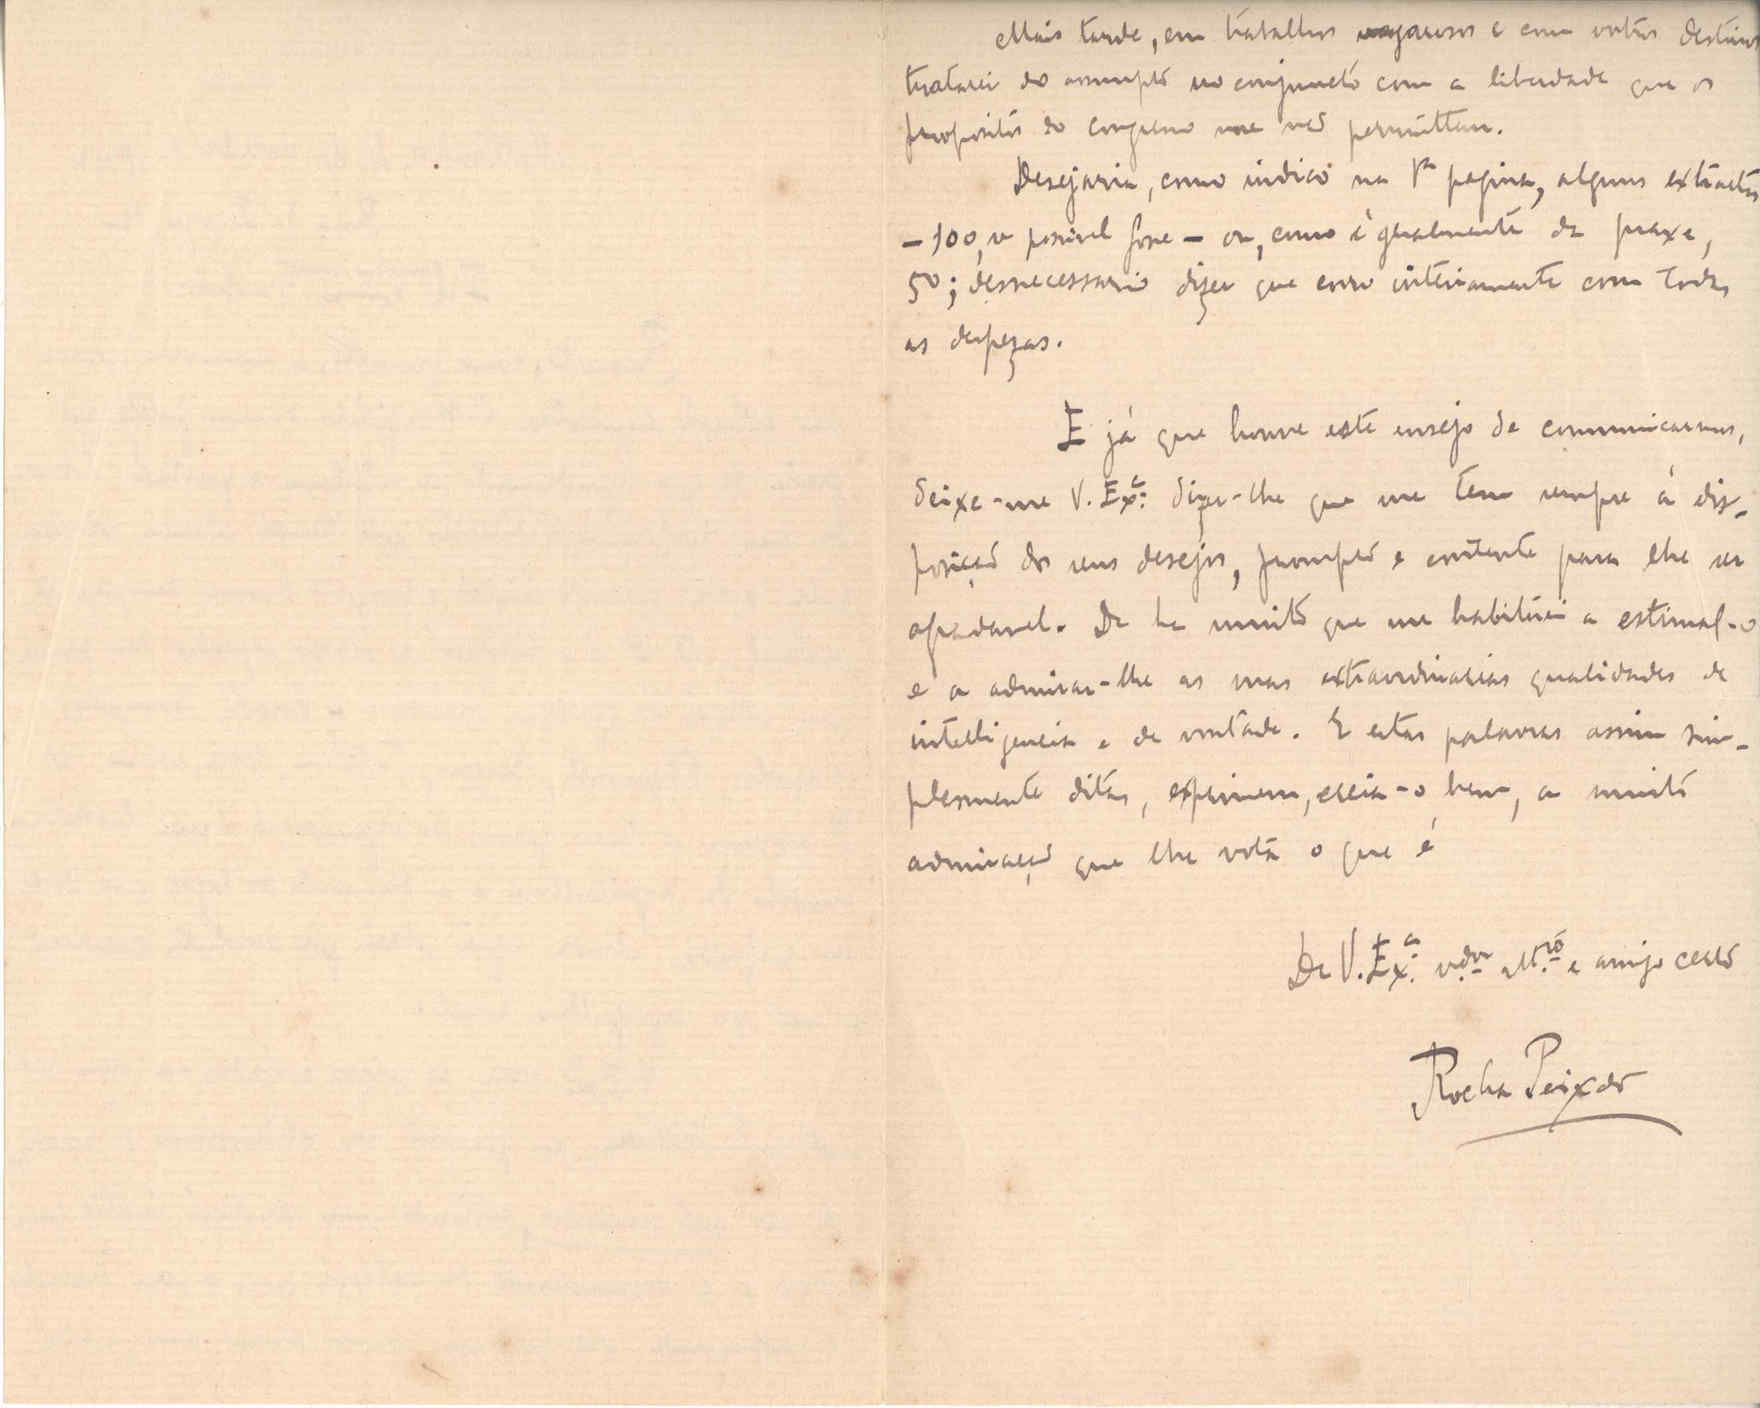 Mais tarde, em trabalhos vagarosos e com outros destinos
tratarei do assumpto no conjuncto com a liberdade que os
propositos do congresso me não permittem.
Desejaria, como indico na 1ª pagina, alguns extractos
– 100, se possivel fosse – ou, como é igualmente da praxe,
50; desnecessario dizer que corro inteiramente com todas
as despezas.
E já que houve este ensejo de communicarmos,
deixe-me V. Exª dizer-lhe que me tem sempre á dis-
posição dos seus desejos, prompto e contente para lhe ser
agradavel. De ha muito que me habituei a estimal-o
e a admirar-lhe as suas extraordinarias qualidades de
intelligencia e de vontade. E estas palavras assim sim-
plesmente ditas, exprimem, creia-o bem, a muita
admiração que lhe vota o que é
De V. Exª vdor mto e amigo certo
Rocha Peixoto